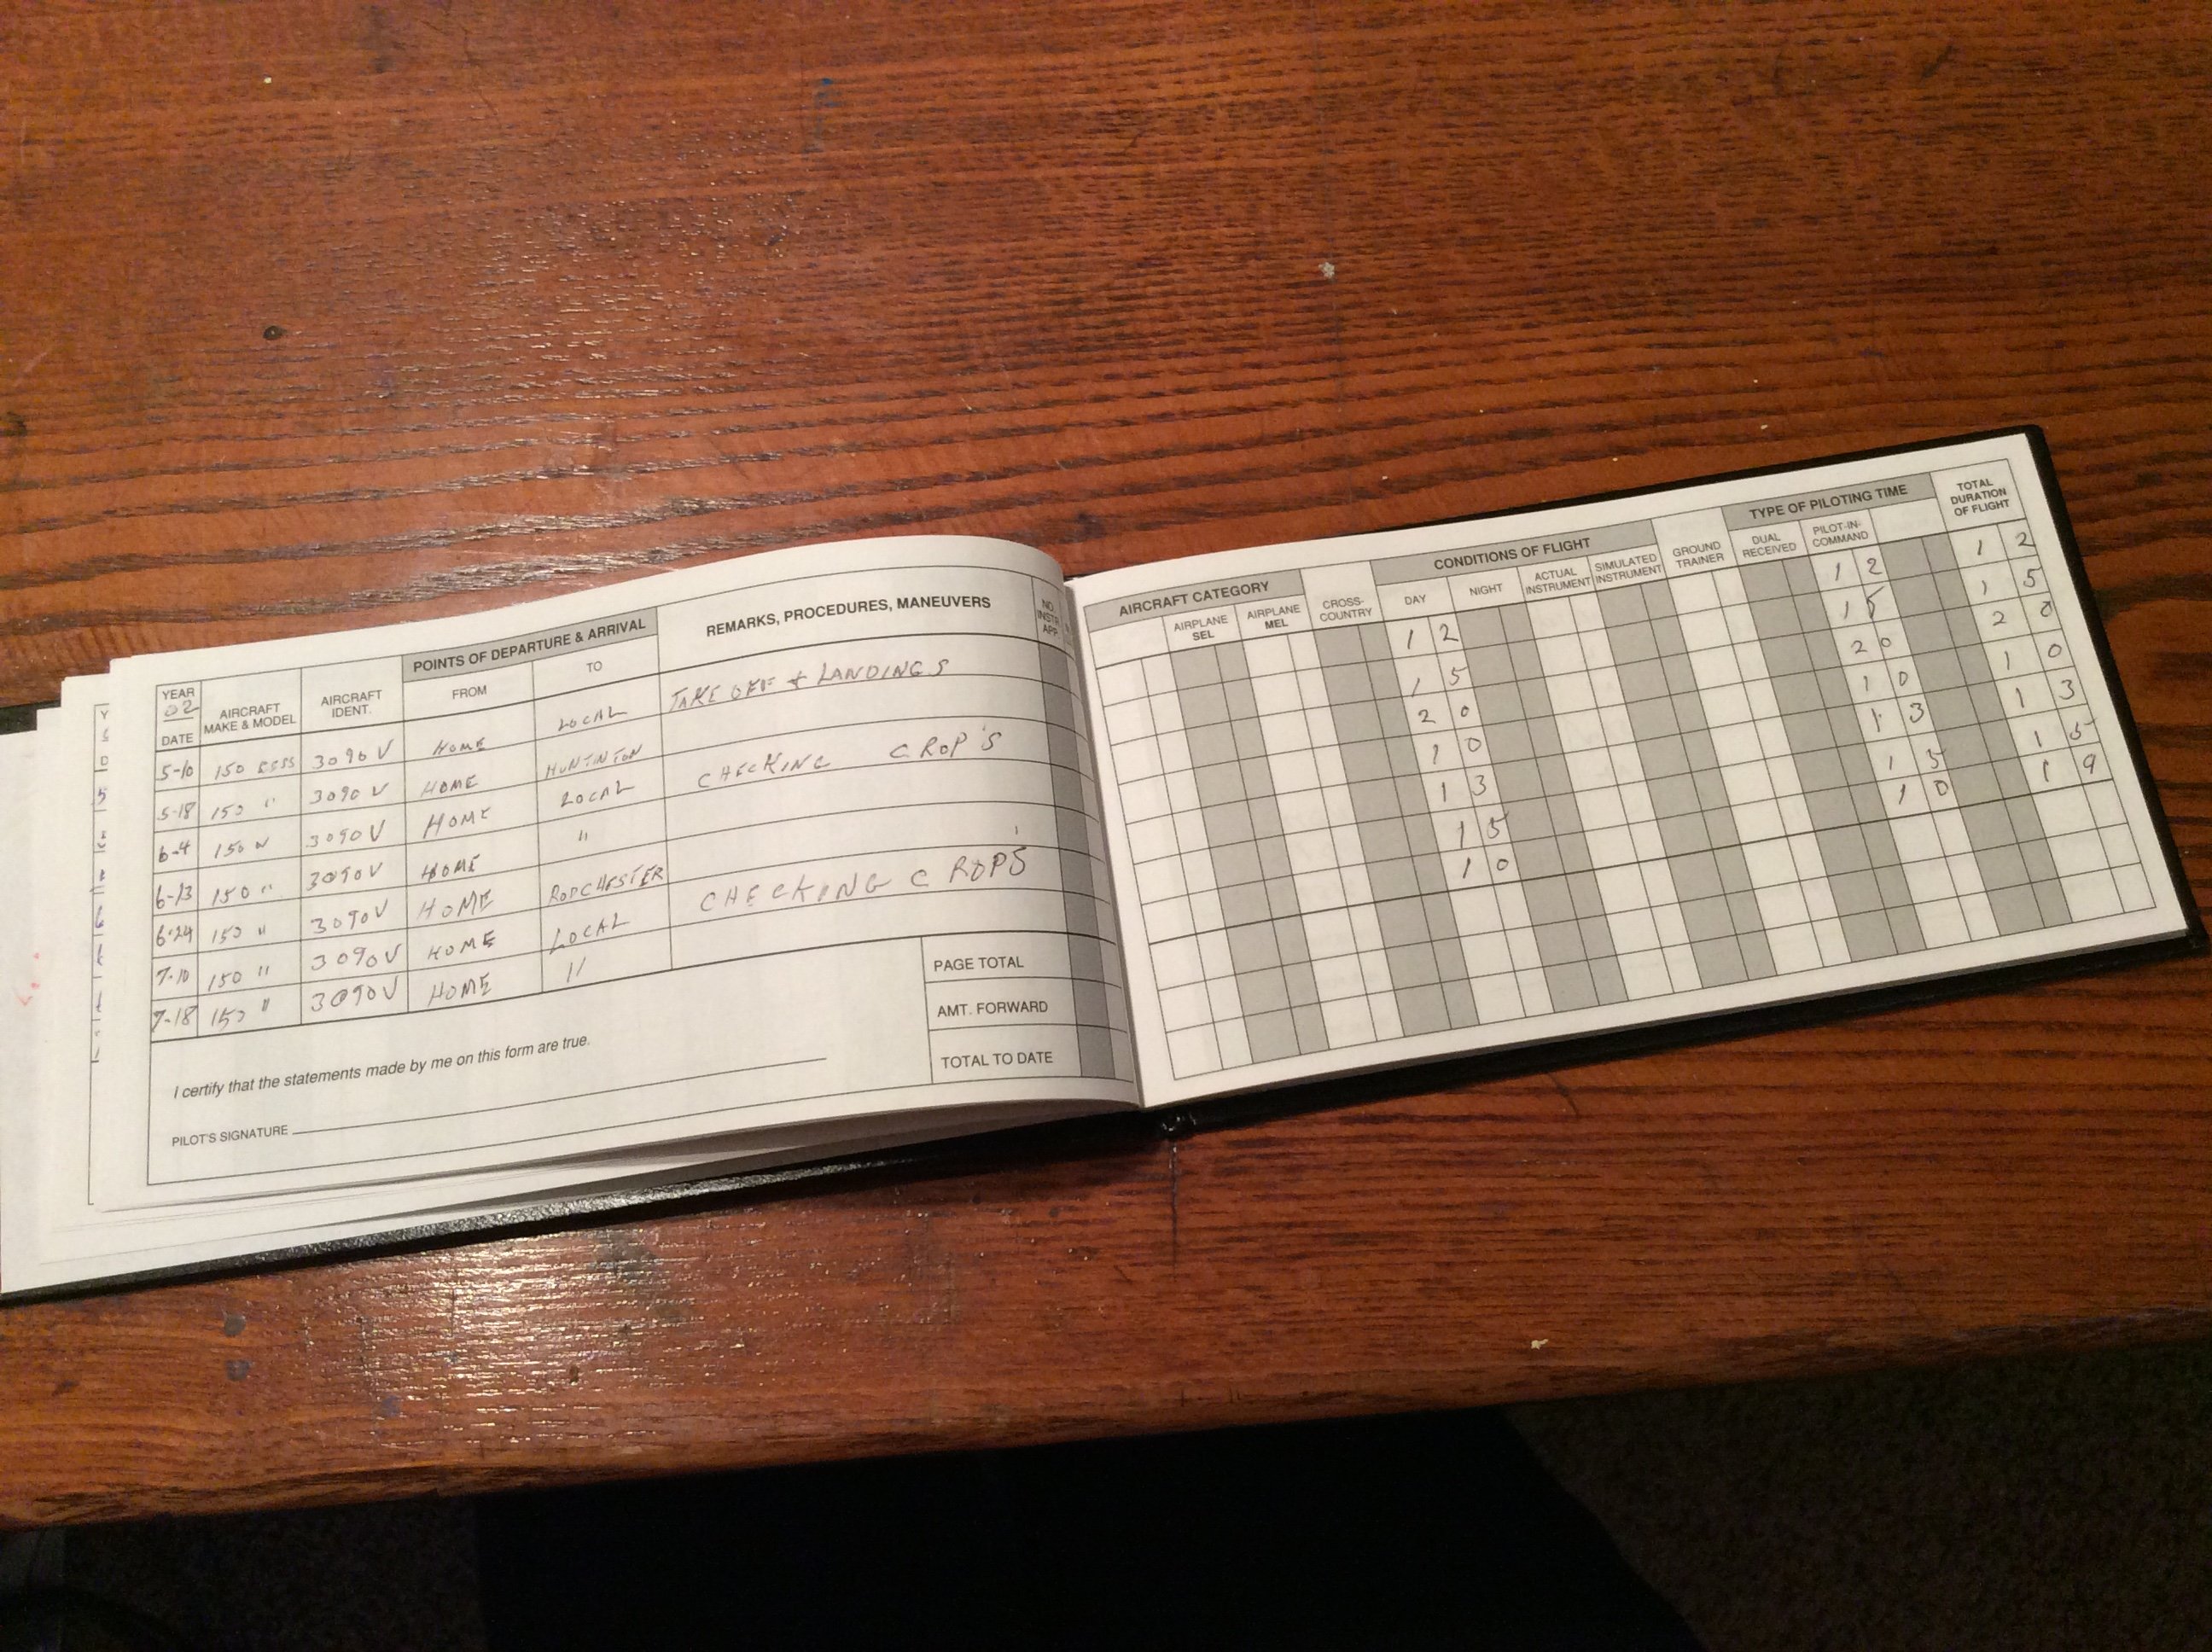 POINTS OF DEPARTURE & ARRIVAL
REMARKS, PROCEDURES, MANEUVERS
NO. INSTR. APP.
YEAR 02
DATE
AIRCRAFT MAKE & MODEL
AIRCRAFT IDENT.
FROM
TO
5-10 150 CESS 3090V HOME LOCAL TAKE OFF + LANDINGS
5-18 150 " 3090V HOME HUNTINTON
6-4 150 " 3090V HOME LOCAL CHECKING CROP'S
6-13 150 " 3090V HOME "
6-24 150 " 3090V HOME RODCHESTER
7-10 150 " 3090V HOME LOCAL CHECKING CROP'S
7-18 150 " 3090V HOME "
I certify that the statements made by me on this form are true.
PILOT'S SIGNATURE
PAGE TOTAL
AMT. FORWARD
TOTAL TO DATE
AIRCRAFT CATEGORY
CONDITIONS OF FLIGHT
TYPE OF PILOTING TIME
TOTAL DURATION OF FLIGHT
AIRPLANE SEL
AIRPLANE MEL
CROSS-COUNTRY
DAY
NIGHT
ACTUAL INSTRUMENT
SIMULATED INSTRUMENT
GROUND TRAINER
DUAL RECEIVED
PILOT-IN-COMMAND
1 2 1 2 1 2
1 5 1 5 1 5
2 0 2 0 2 0
1 0 1 0 1 0
1 3 1 3 1 3
1 5 1 5 1 5
1 0 1 0 1 9